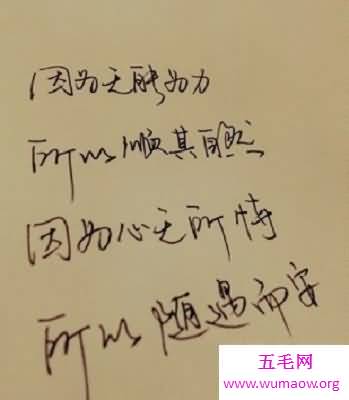 因为无能为力
所以顺其自然
因为心无所恃
所以随遇而安
五毛网
www.wumaow.org